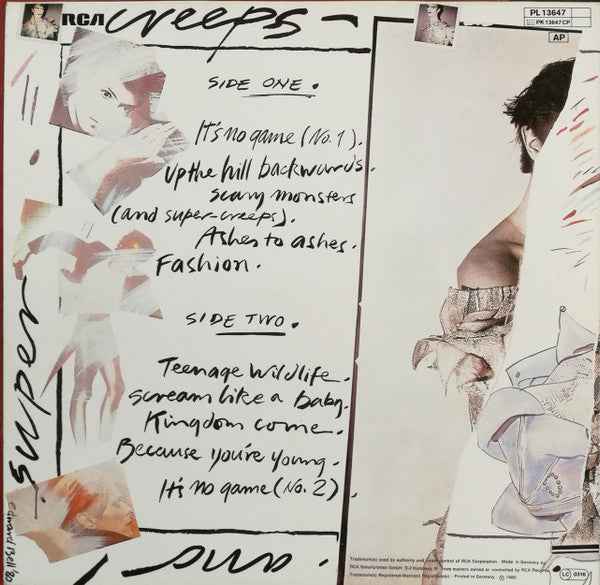 RCA creeps -
PL 13647
PK 13647 CP
AP
SIDE ONE.
It's no game (No. 1).
Up the hill backwards.
Scary monsters
(and super-creeps).
Ashes to ashes.
Fashion.
SIDE TWO.
Teenage Wildlife.
Scream like a baby.
Kingdom come.
Because you're young.
It's no game (No. 2).
super
and
Edward Bell '80
Trademark(s) used by authority and under control of RCA Corporation · Made in Germany by
Printed in Germany
LC 0316